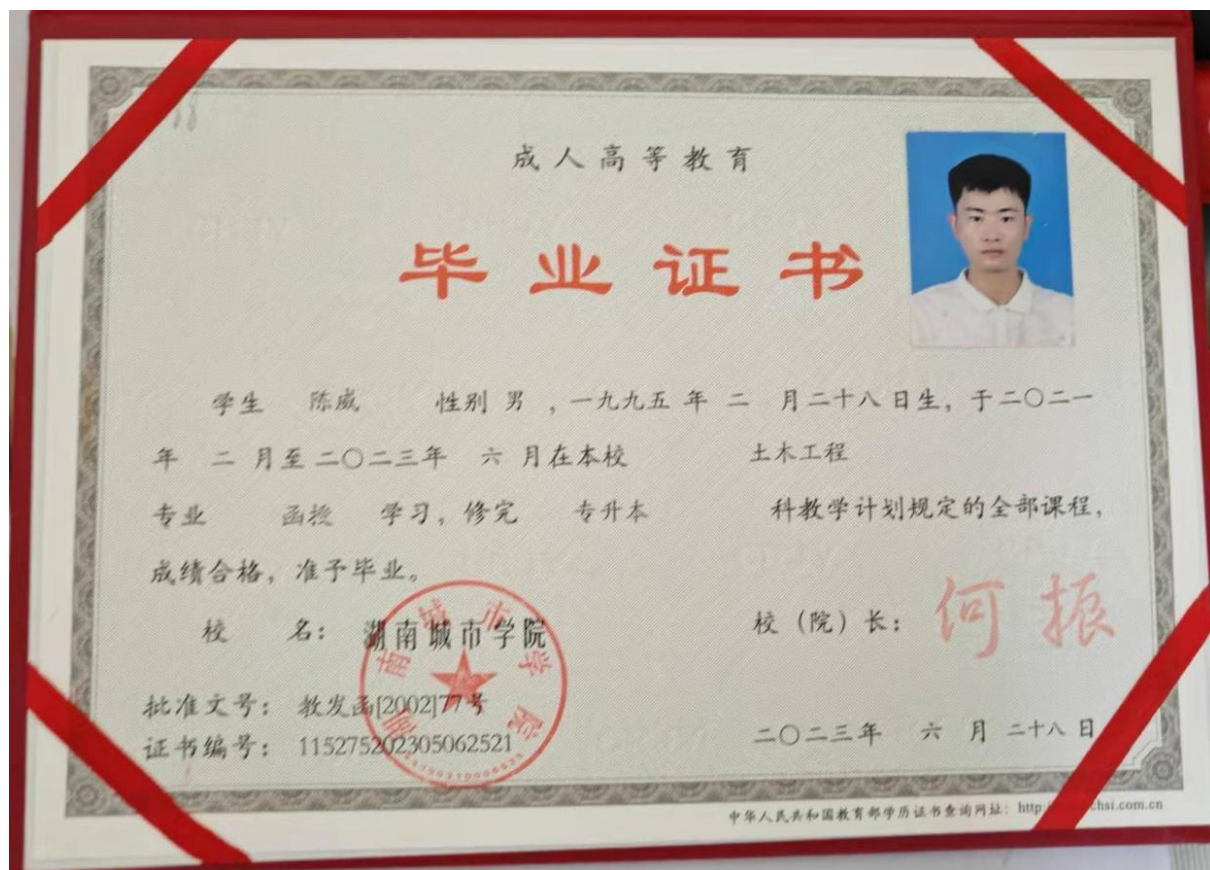 成人高等教育
毕业证书
学生 陈威 性别 男 ,一九九五 年 二 月二十八日生, 于二〇二一
年 二 月至二〇二三年 六 月在本校 土木工程
专业 函授 学习, 修完 专升本 科教学计划规定的全部课程,
成绩合格, 准予毕业。
校 名: 湖南城市学院
校（院）长: 何振
湖南城市学院
批准文号: 教发函[2002]77号
证书编号: 115275202305062521
二〇二三年 六 月 二十八日
中华人民共和国教育部学历证书查询网址: http: chsi.com.cn